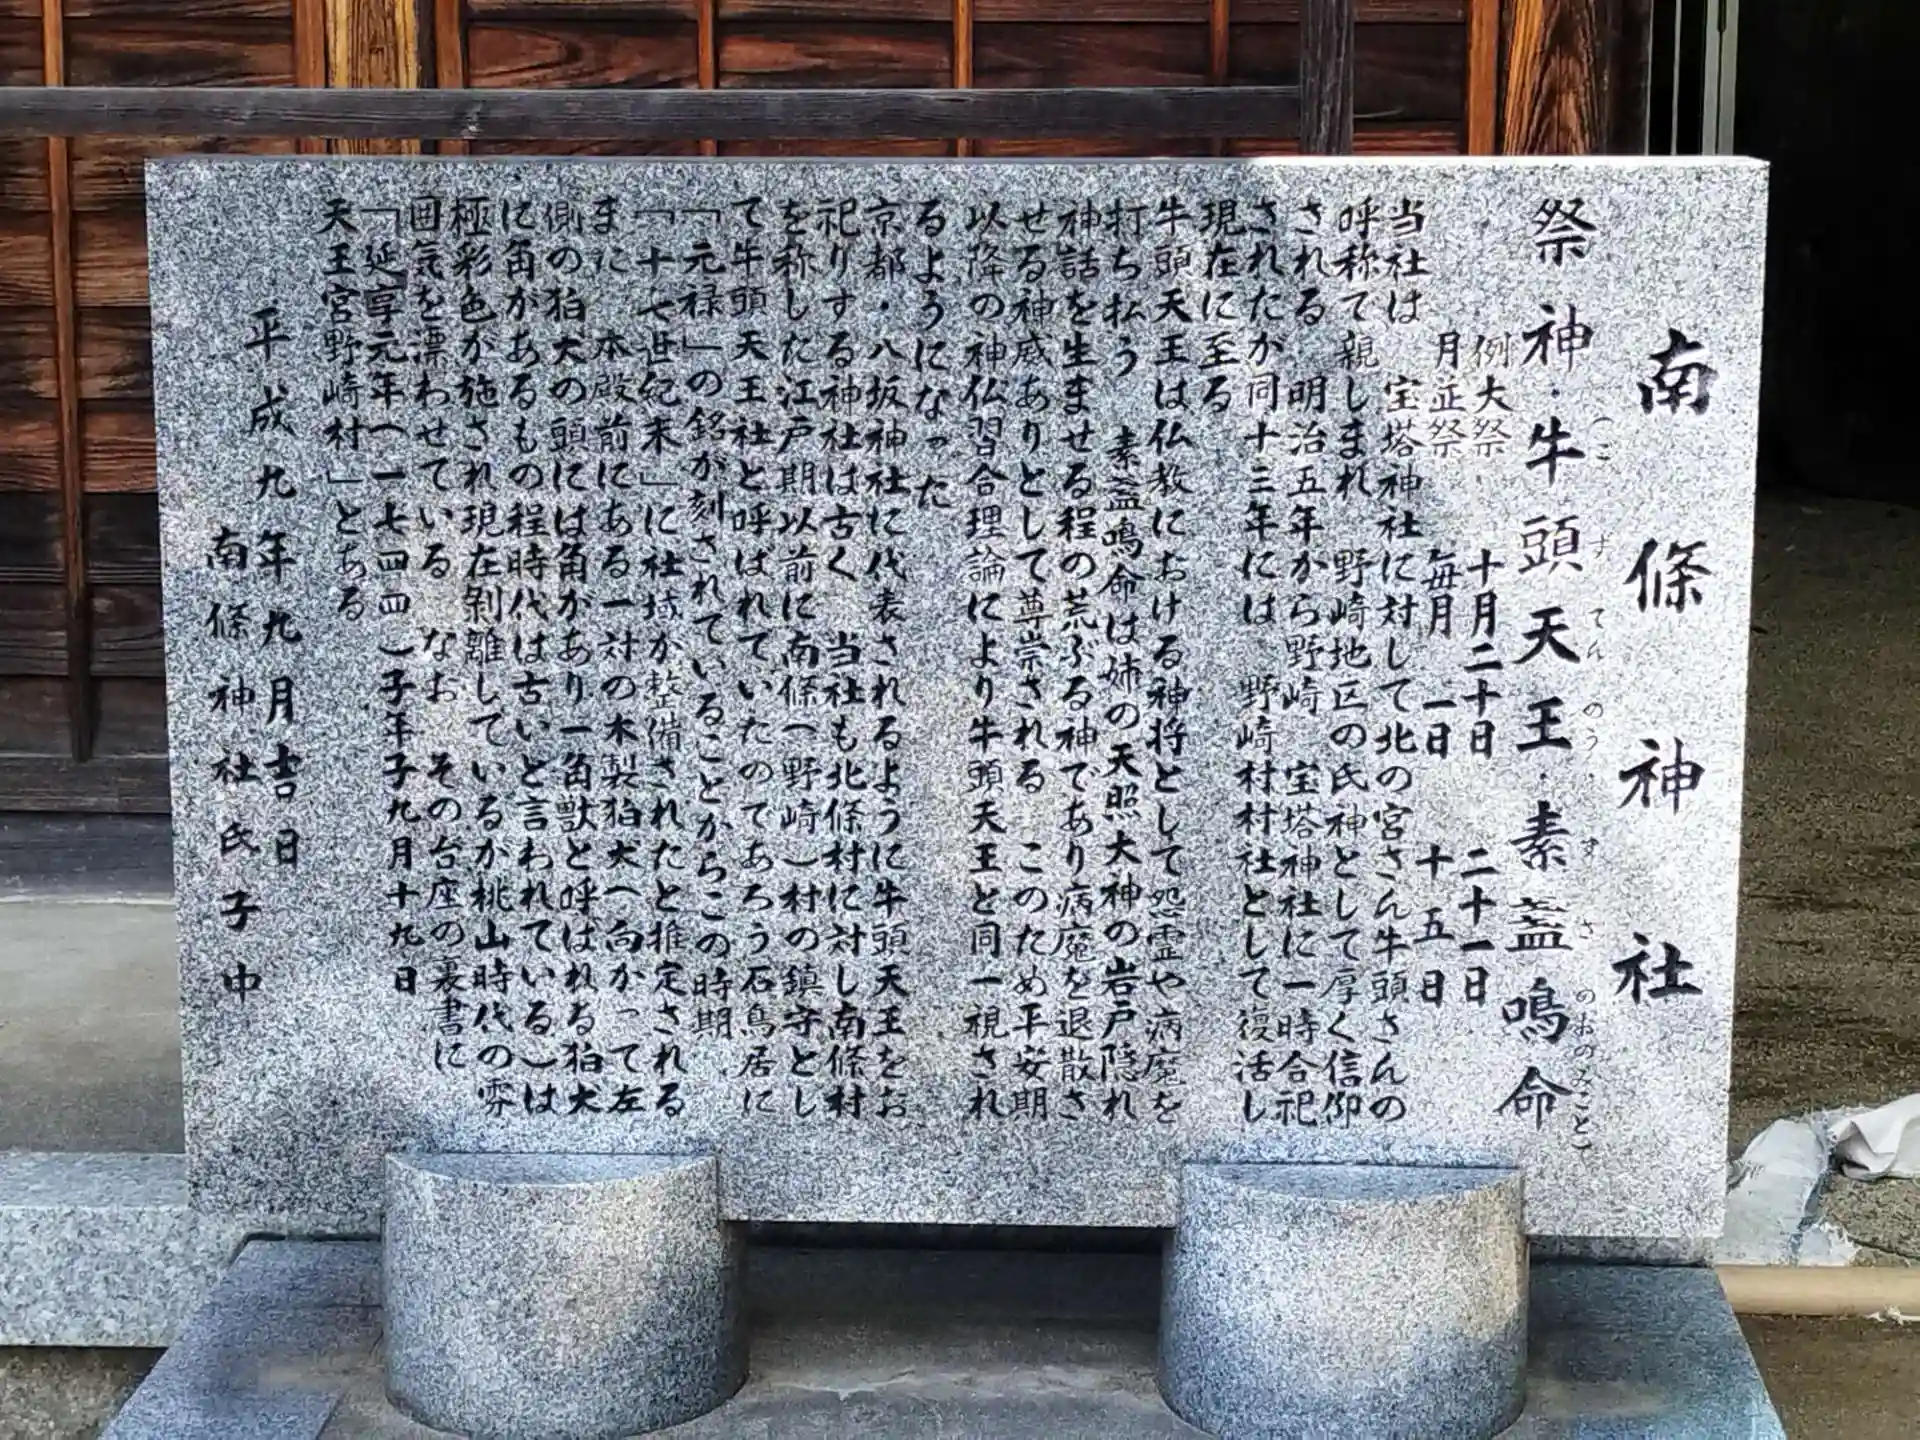 南條神社
祭神・牛頭天王・素盞嗚命
(ごずてんのう・すさのおのみこと)
例大祭 十月二十日 二十一日
月正祭 毎月 一日 十五日
当社は 宝塔神社に対して北の宮さん牛頭さんの
呼称で親しまれ 野崎地区の氏神として厚く信仰
される 明治五年から野崎 宝塔神社に一時合祀
されたが同十三年には 野崎村村社として復活し
現在に至る
牛頭天王は仏教における神将として怨霊や病魔を
打ち払う 素盞嗚命は姉の天照大神の岩戸隠れ
神話を生ませる程の荒ぶる神であり病魔を退散さ
せる神威ありとして尊崇される このため平安期
以降の神仏習合理論により牛頭天王と同一視され
るようになった
京都・八坂神社に代表されるように牛頭天王をお
祀りする神社は古く 当社も北條村に対し南條村
を称した江戸期以前に南條(野崎)村の鎮守とし
て牛頭天王社と呼ばれていたのであろう石鳥居に
「元禄」の銘が刻されていることからこの時期
「十七世紀末」に社域が整備されたと推定される
また 本殿前にある一対の木製狛犬へ向かって左
側の狛犬の頭には角があり一角獣と呼ばれる狛犬
に角があるもの程時代は古いと言われている)は
極彩色が施され現在剥離しているが桃山時代の雰
囲気を漂わせている なお その台座の裏書に
「延享元年(一七四四)子年子九月十九日
天王宮野崎村」とある
平成九年九月吉日
南條神社氏子中